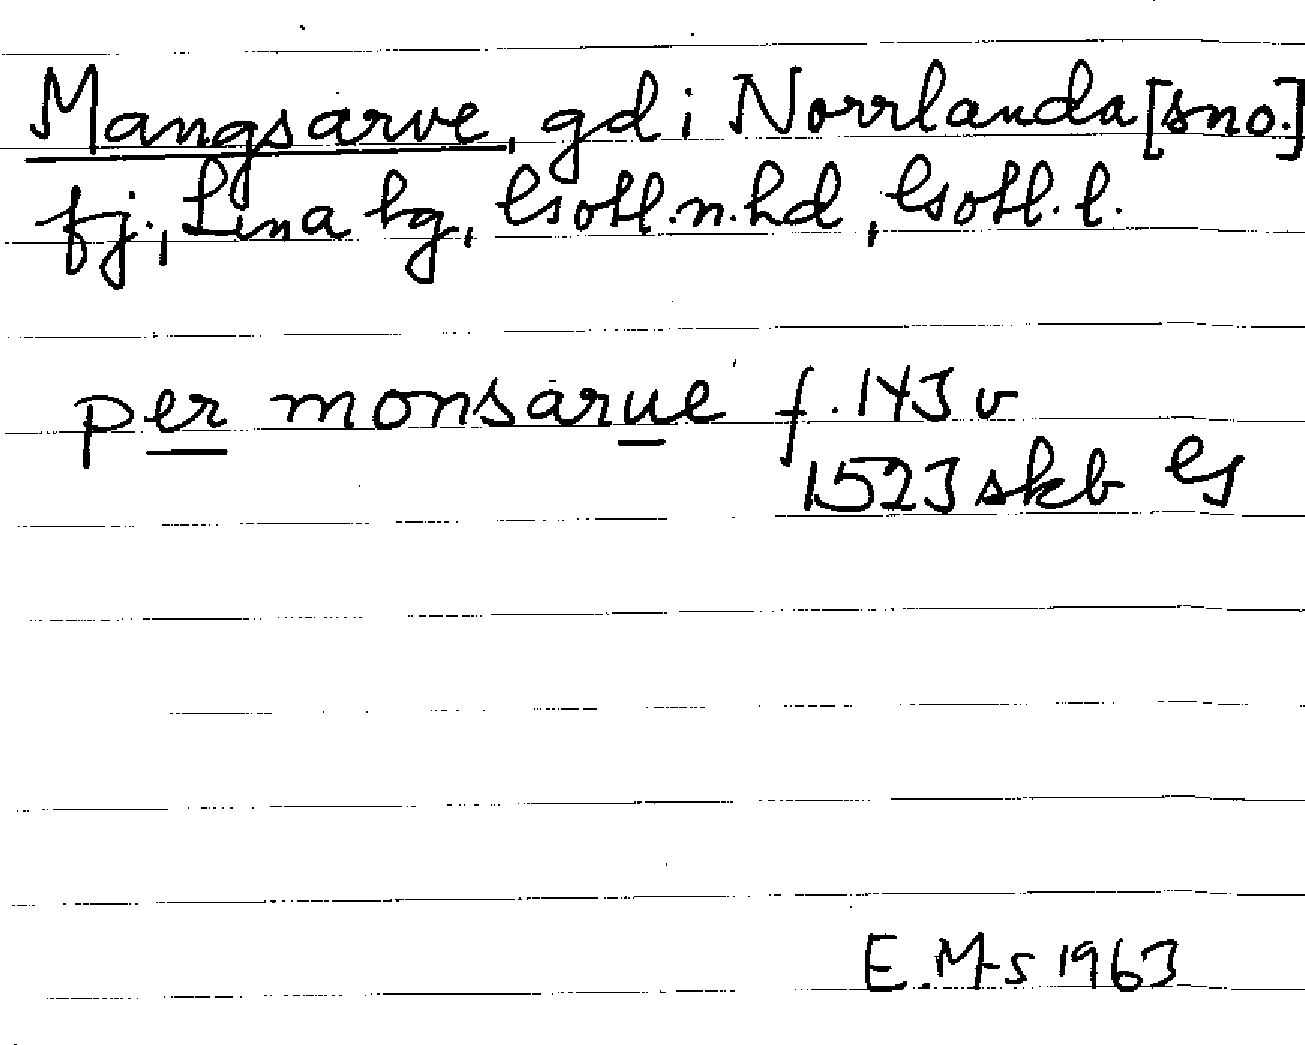 Mangsarve, gd i Norrlanda [sno.]
fj., Lina hg, Gotl.n.hd, Gotl. l.
per monsarue f. 143 v
1523 skb G
E. M-s 1963